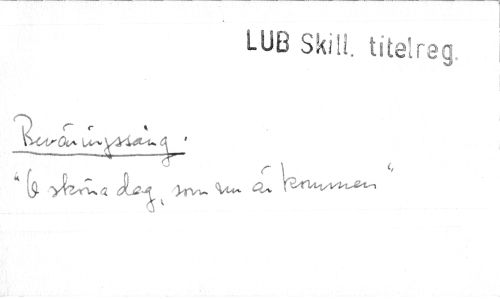 LUB Skill. titelreg.
Beväringssång.
"O sköna dag, som nu är kommen"